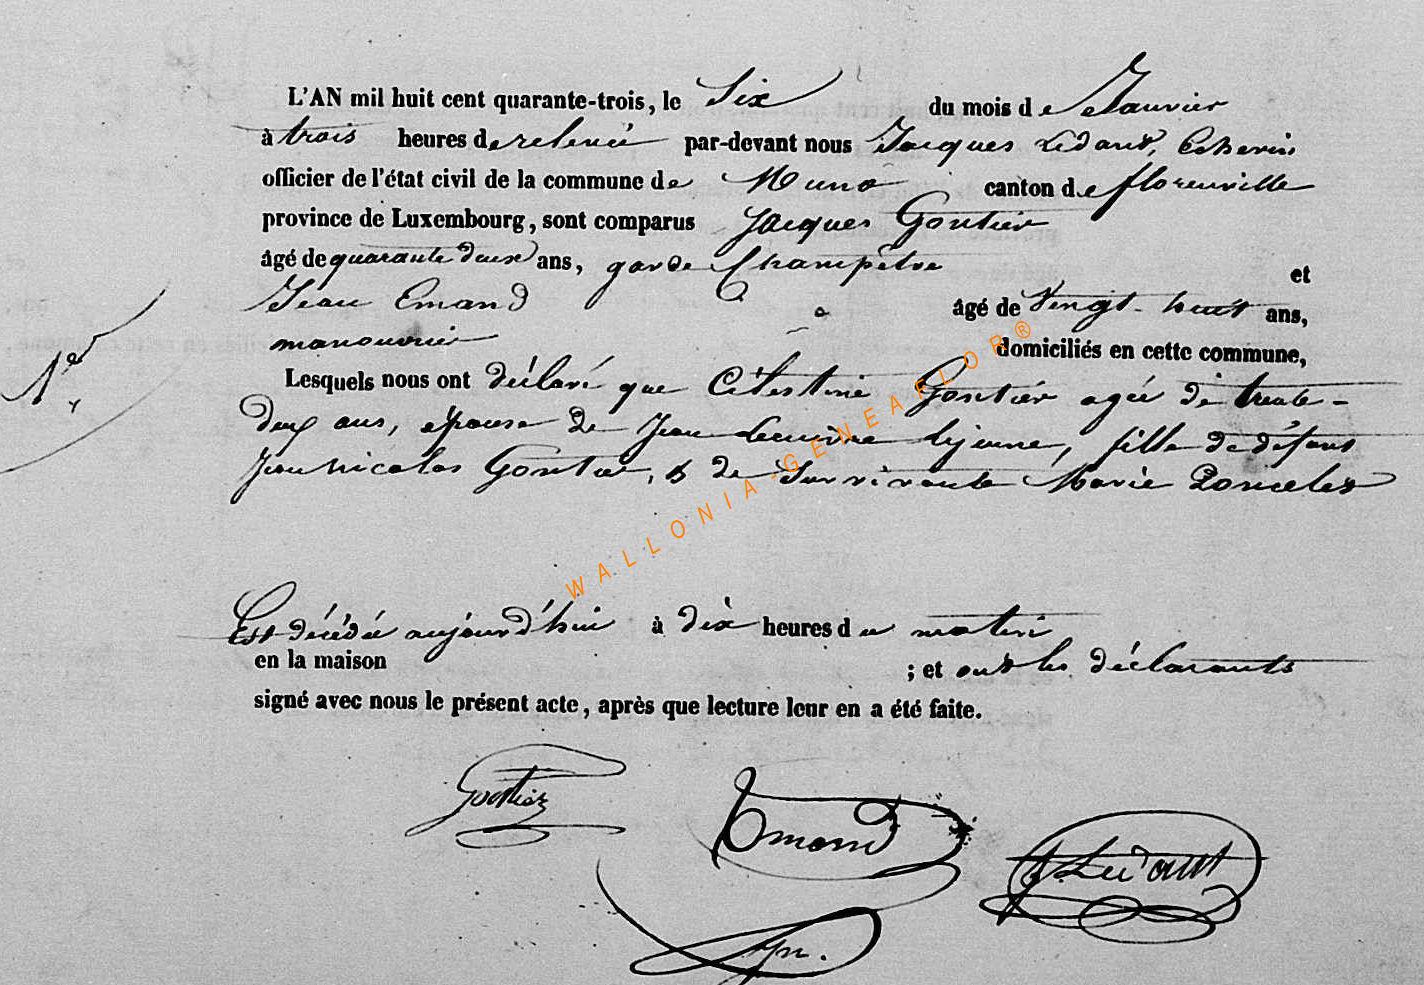 L'AN mil huit cent quarante-trois, le Six du mois de Janvier
à trois heures de relevée par-devant nous Jacques Ledant, Echevin
officier de l'état civil de la commune de Muno canton de florenville
province de Luxembourg, sont comparus Jacques Gontier
âgé de quarante deux ans, garde Champêtre et
Jean Emand âgé de Vingt-huit ans,
manouvrier domiciliés en cette commune,
N° 1
Lesquels nous ont déclaré que Célestine Gontier agée de trente-
deux ans, épouse de Jean lejeune, fille de défunt
Jean Nicolas Gontier, & de Survivante Marie Poncelet
Est décédée aujourd'hui à dix heures du matin
en la maison ; et ont les déclarants
signé avec nous le présent acte, après que lecture leur en a été faite.
Gontier
Emand
J. Ledant
WALLONIA-GENEAFLOR®